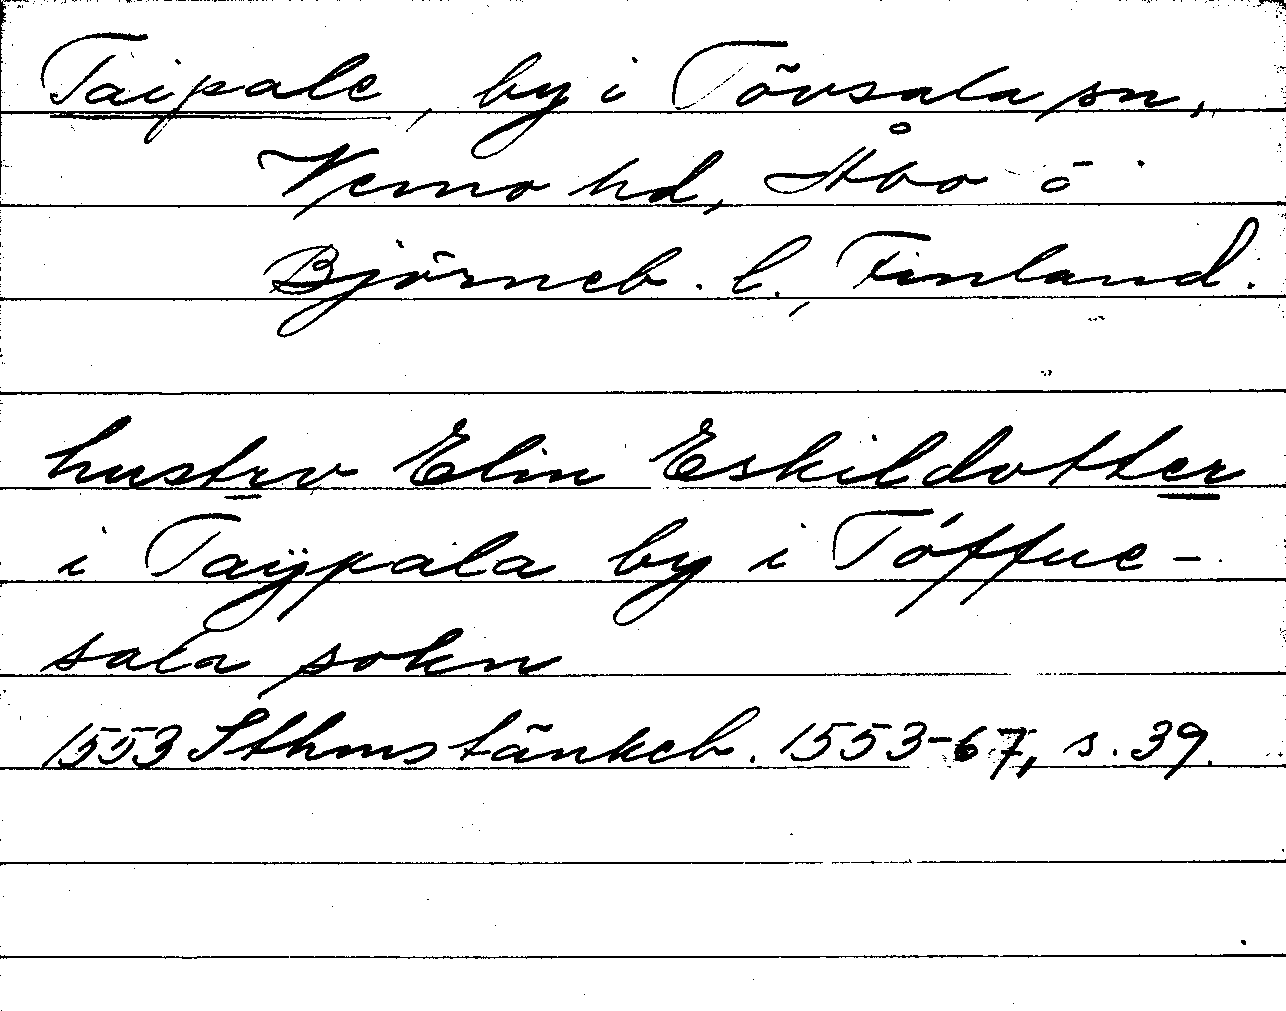 Taipale, by i Tövsala sn,
Vemo hd, Åbo o
Björneb. l., Finland.
hustrv Elin Eskildotter
i Taÿpala by i Töffue-
sala sokn
1553 Sthms tänkeb. 1553-67, s. 39.